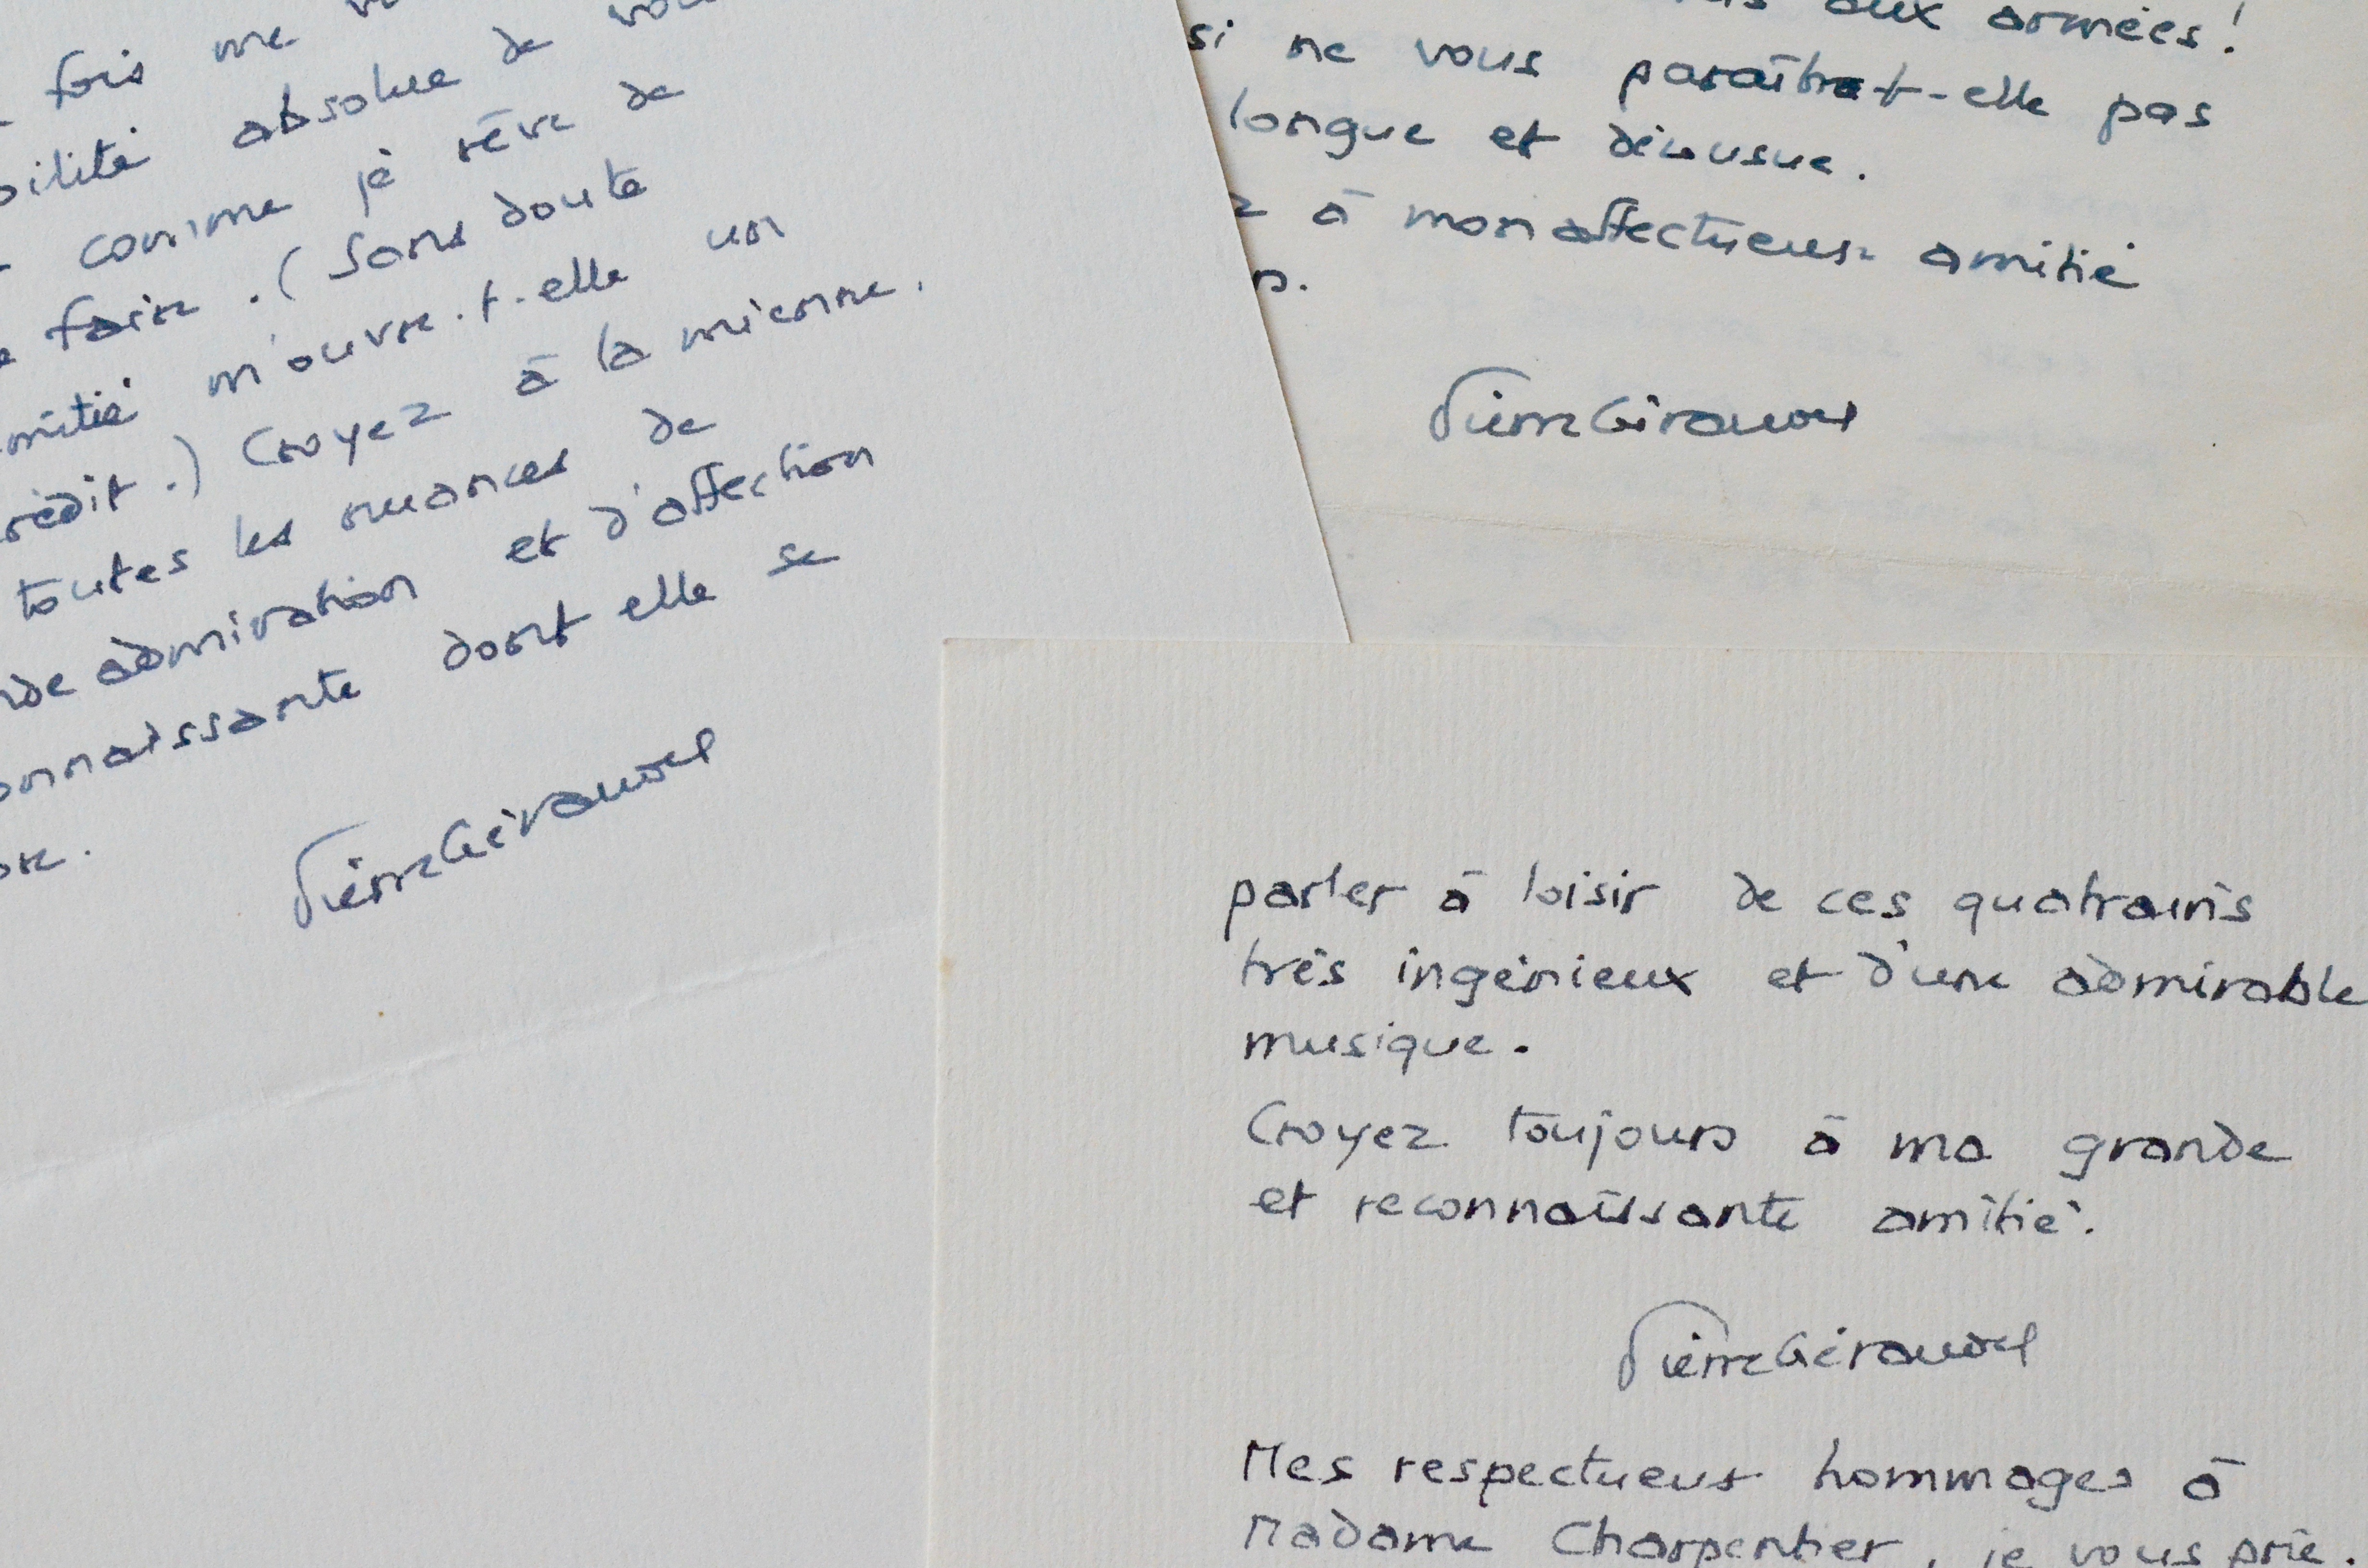 fois me
absolue de
comme je rêve de
faire. (Sans doute
m'ouvre-t-elle un
crédit.) Croyez à la mienne.
toutes les nuances de
admiration et d'affection
dont elle se
Pierre Géraudel
aux armées!
si ne vous paraîtra-t-elle pas
longue et décousue.
à mon affectueuse amitié
Pierre Géraudel
parler à loisir de ces quatrains
très ingénieux et d'une admirable
musique.
Croyez toujours à ma grande
et reconnaissante amitié.
Pierre Géraudel
Mes respectueux hommages à
Madame Charpentier, je vous prie.